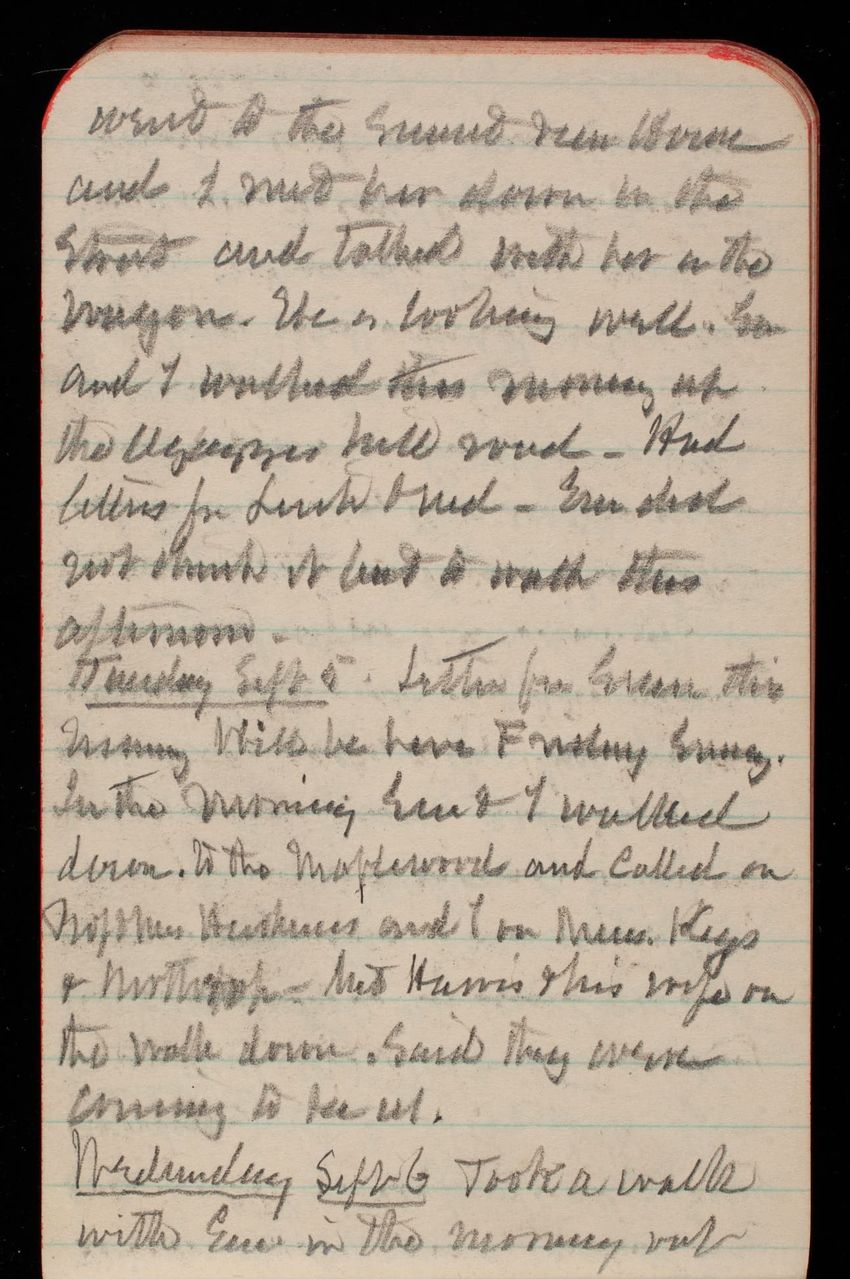 went to the Summit View House
and I met her down in the
Street and talked with her in the
wagon. She is looking well. Em
and I walked this morning up
the hill road - Had
letters fr and - Em did
not think it best to walk this
afternoon.
Tuesday Sept 5. Letter fr this
Will be here Friday
In the morning Em & I walked
down to the Maplewood and Called on
and I on Keys
& Northrop - Met Harris & his wife on
the walk down. Said they were
coming to see us.
Wednesday Sept 6 Took a walk
with Em in the morning